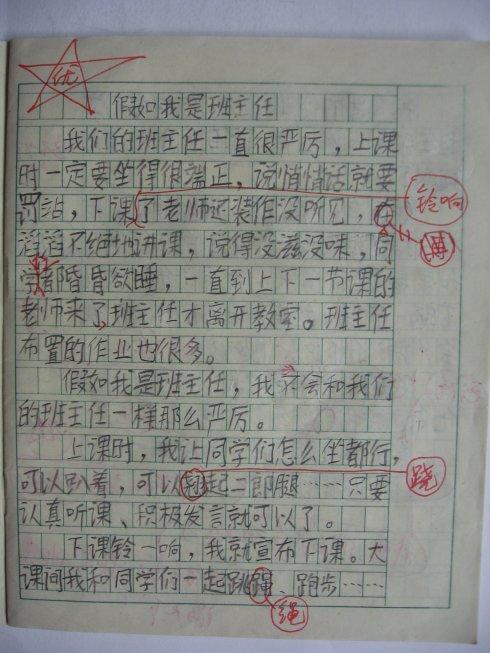 优
假如我是班主任
我们的班主任一直很严厉，上课
时一定要坐得很端正，说悄悄话就要
罚站，下课了老师还装作没听见，在
铃响
滔滔不绝地讲课，说得没滋没味，同
学都昏昏欲睡，一直到上下一节课的
老师来了，班主任才离开教室。班主任
布置的作业也很多。
假如我是班主任，我才会和我们
的班主任一样那么严厉。
上课时，我让同学们怎么坐都行，
可以趴着，可以翘起二郎腿……只要
跷
认真听课、积极发言就可以了。
下课铃一响，我就宣布下课。大
课间我和同学们一起跳绳 跑步……
绳